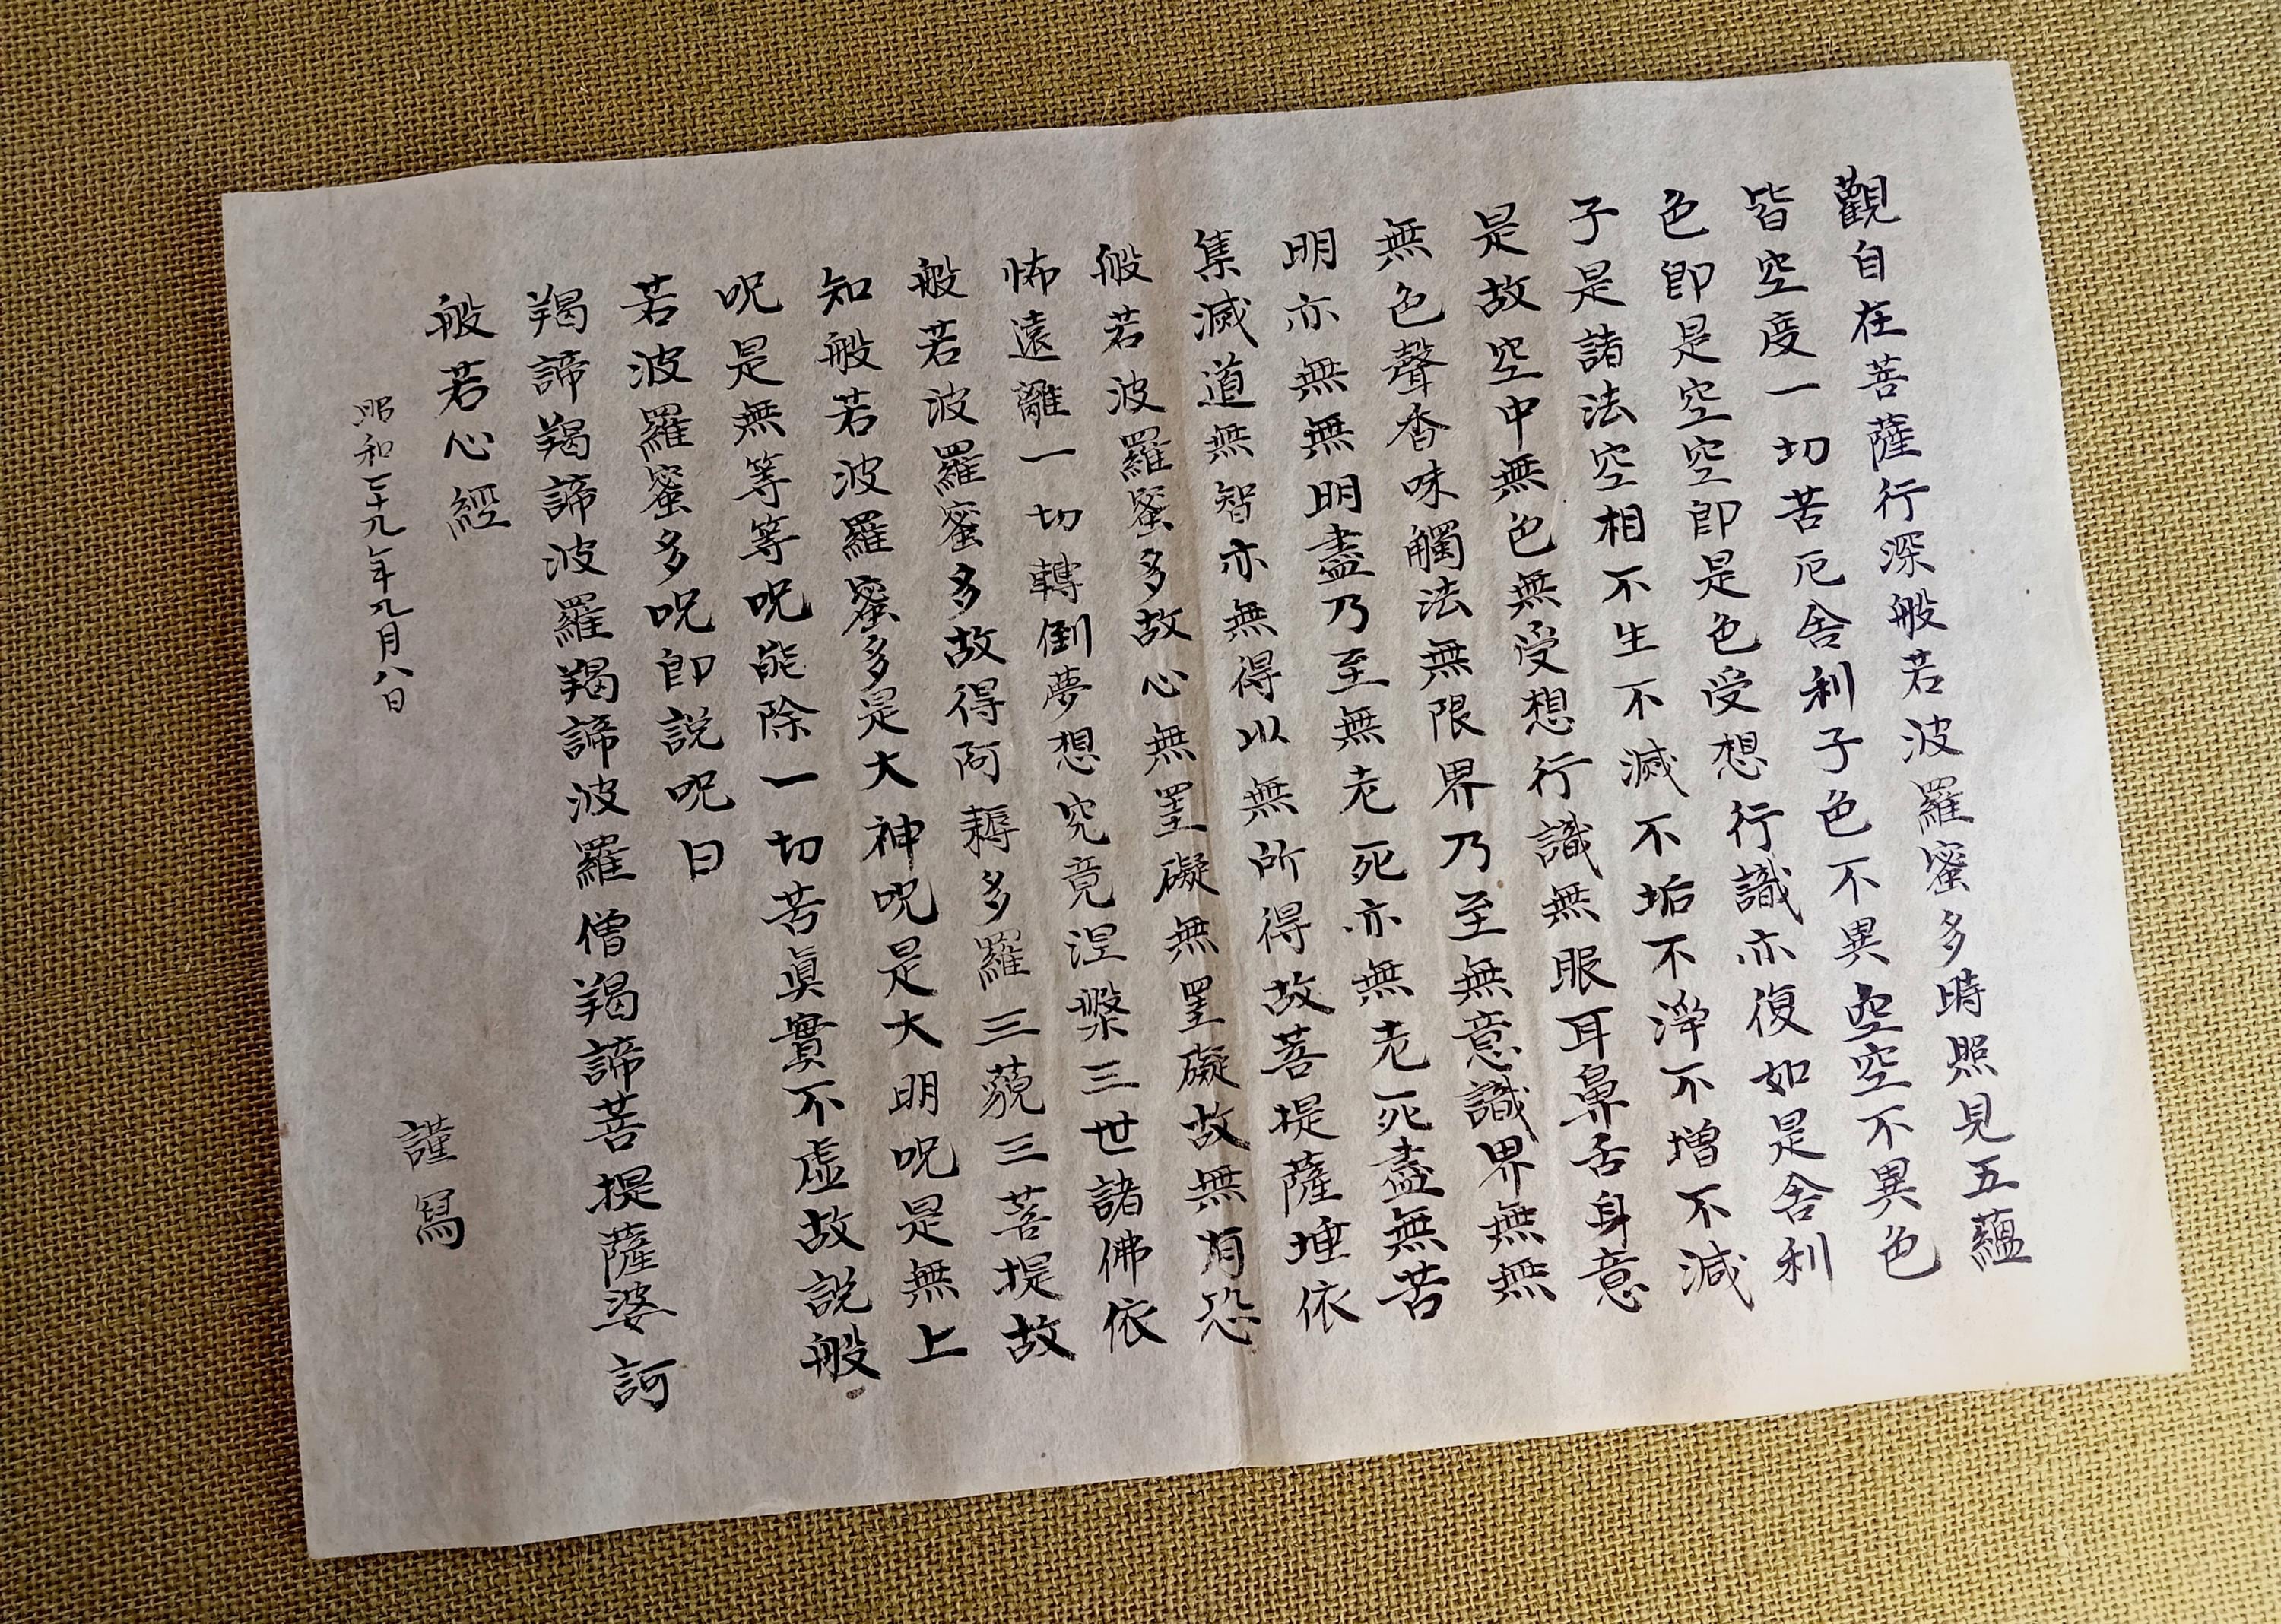 觀自在菩薩行深般若波羅蜜多時照見五蘊
皆空度一切苦厄舍利子色不異空空不異色
色即是空空即是色受想行識亦復如是舍利
子是諸法空相不生不滅不垢不淨不增不減
是故空中無色無受想行識無眼耳鼻舌身意
無色聲香味觸法無限界乃至無意識界無無
明亦無無明盡乃至無老死亦無老死盡無苦
集滅道無智亦無得以無所得故菩提薩埵依
般若波羅蜜多故心無罣礙無罣礙故無有恐
怖遠離一切轉倒夢想究竟涅槃三世諸佛依
般若波羅蜜多故得阿耨多羅三藐三菩提故
知般若波羅蜜多是大神呪是大明呪是無上
呪是無等等呪能除一切苦眞實不虛故説般
若波羅蜜多呪即説呪曰
羯諦羯諦波羅羯諦波羅僧羯諦菩提薩婆訶
般若心經
昭和三十九年九月八日
謹冩